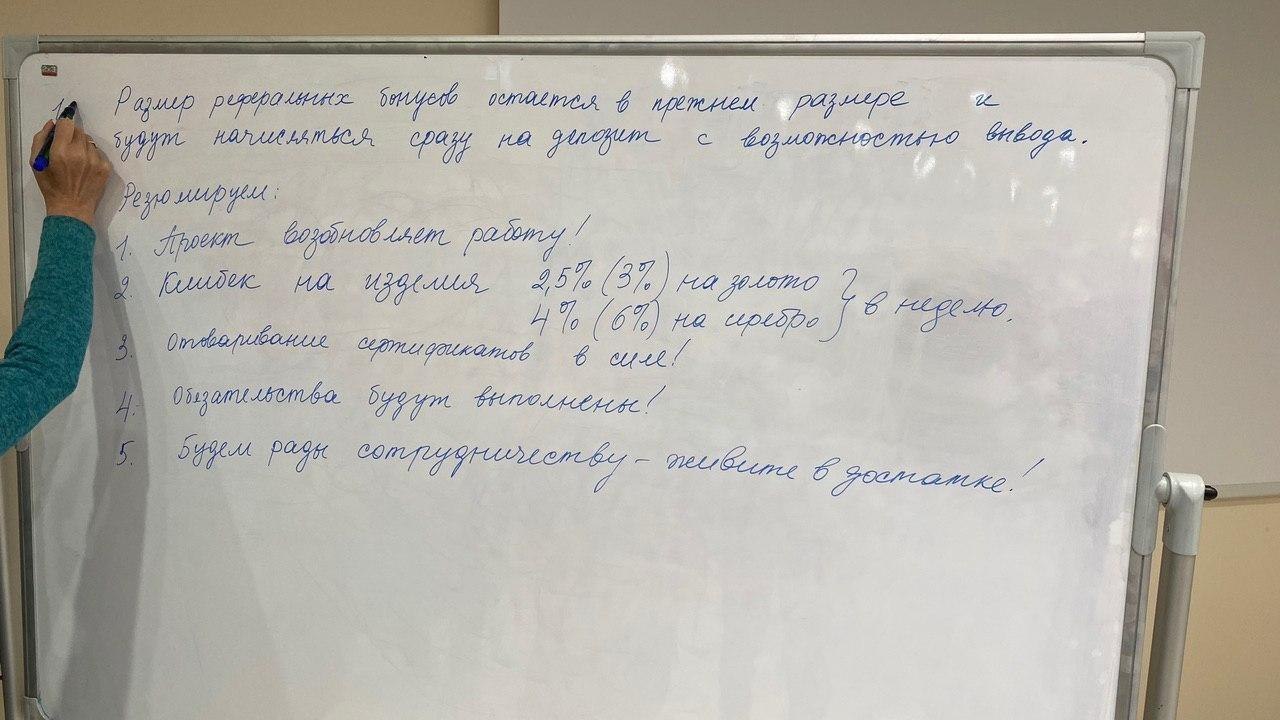 1. Размер реферальных бонусов остается в прежнем размере и
будут начисляться сразу на депозит с возможностью вывода.
Резюмируем:
1. Проект возобновляет работу!
2. Клибек на изделия 2,5% (3%) на золото
4% (6%) на серебро } в неделю.
3. Отоваривание сертификатов в силе!
4. Обязательства будут выполнены!
5. Будем рады сотрудничеству - живите в достатке!